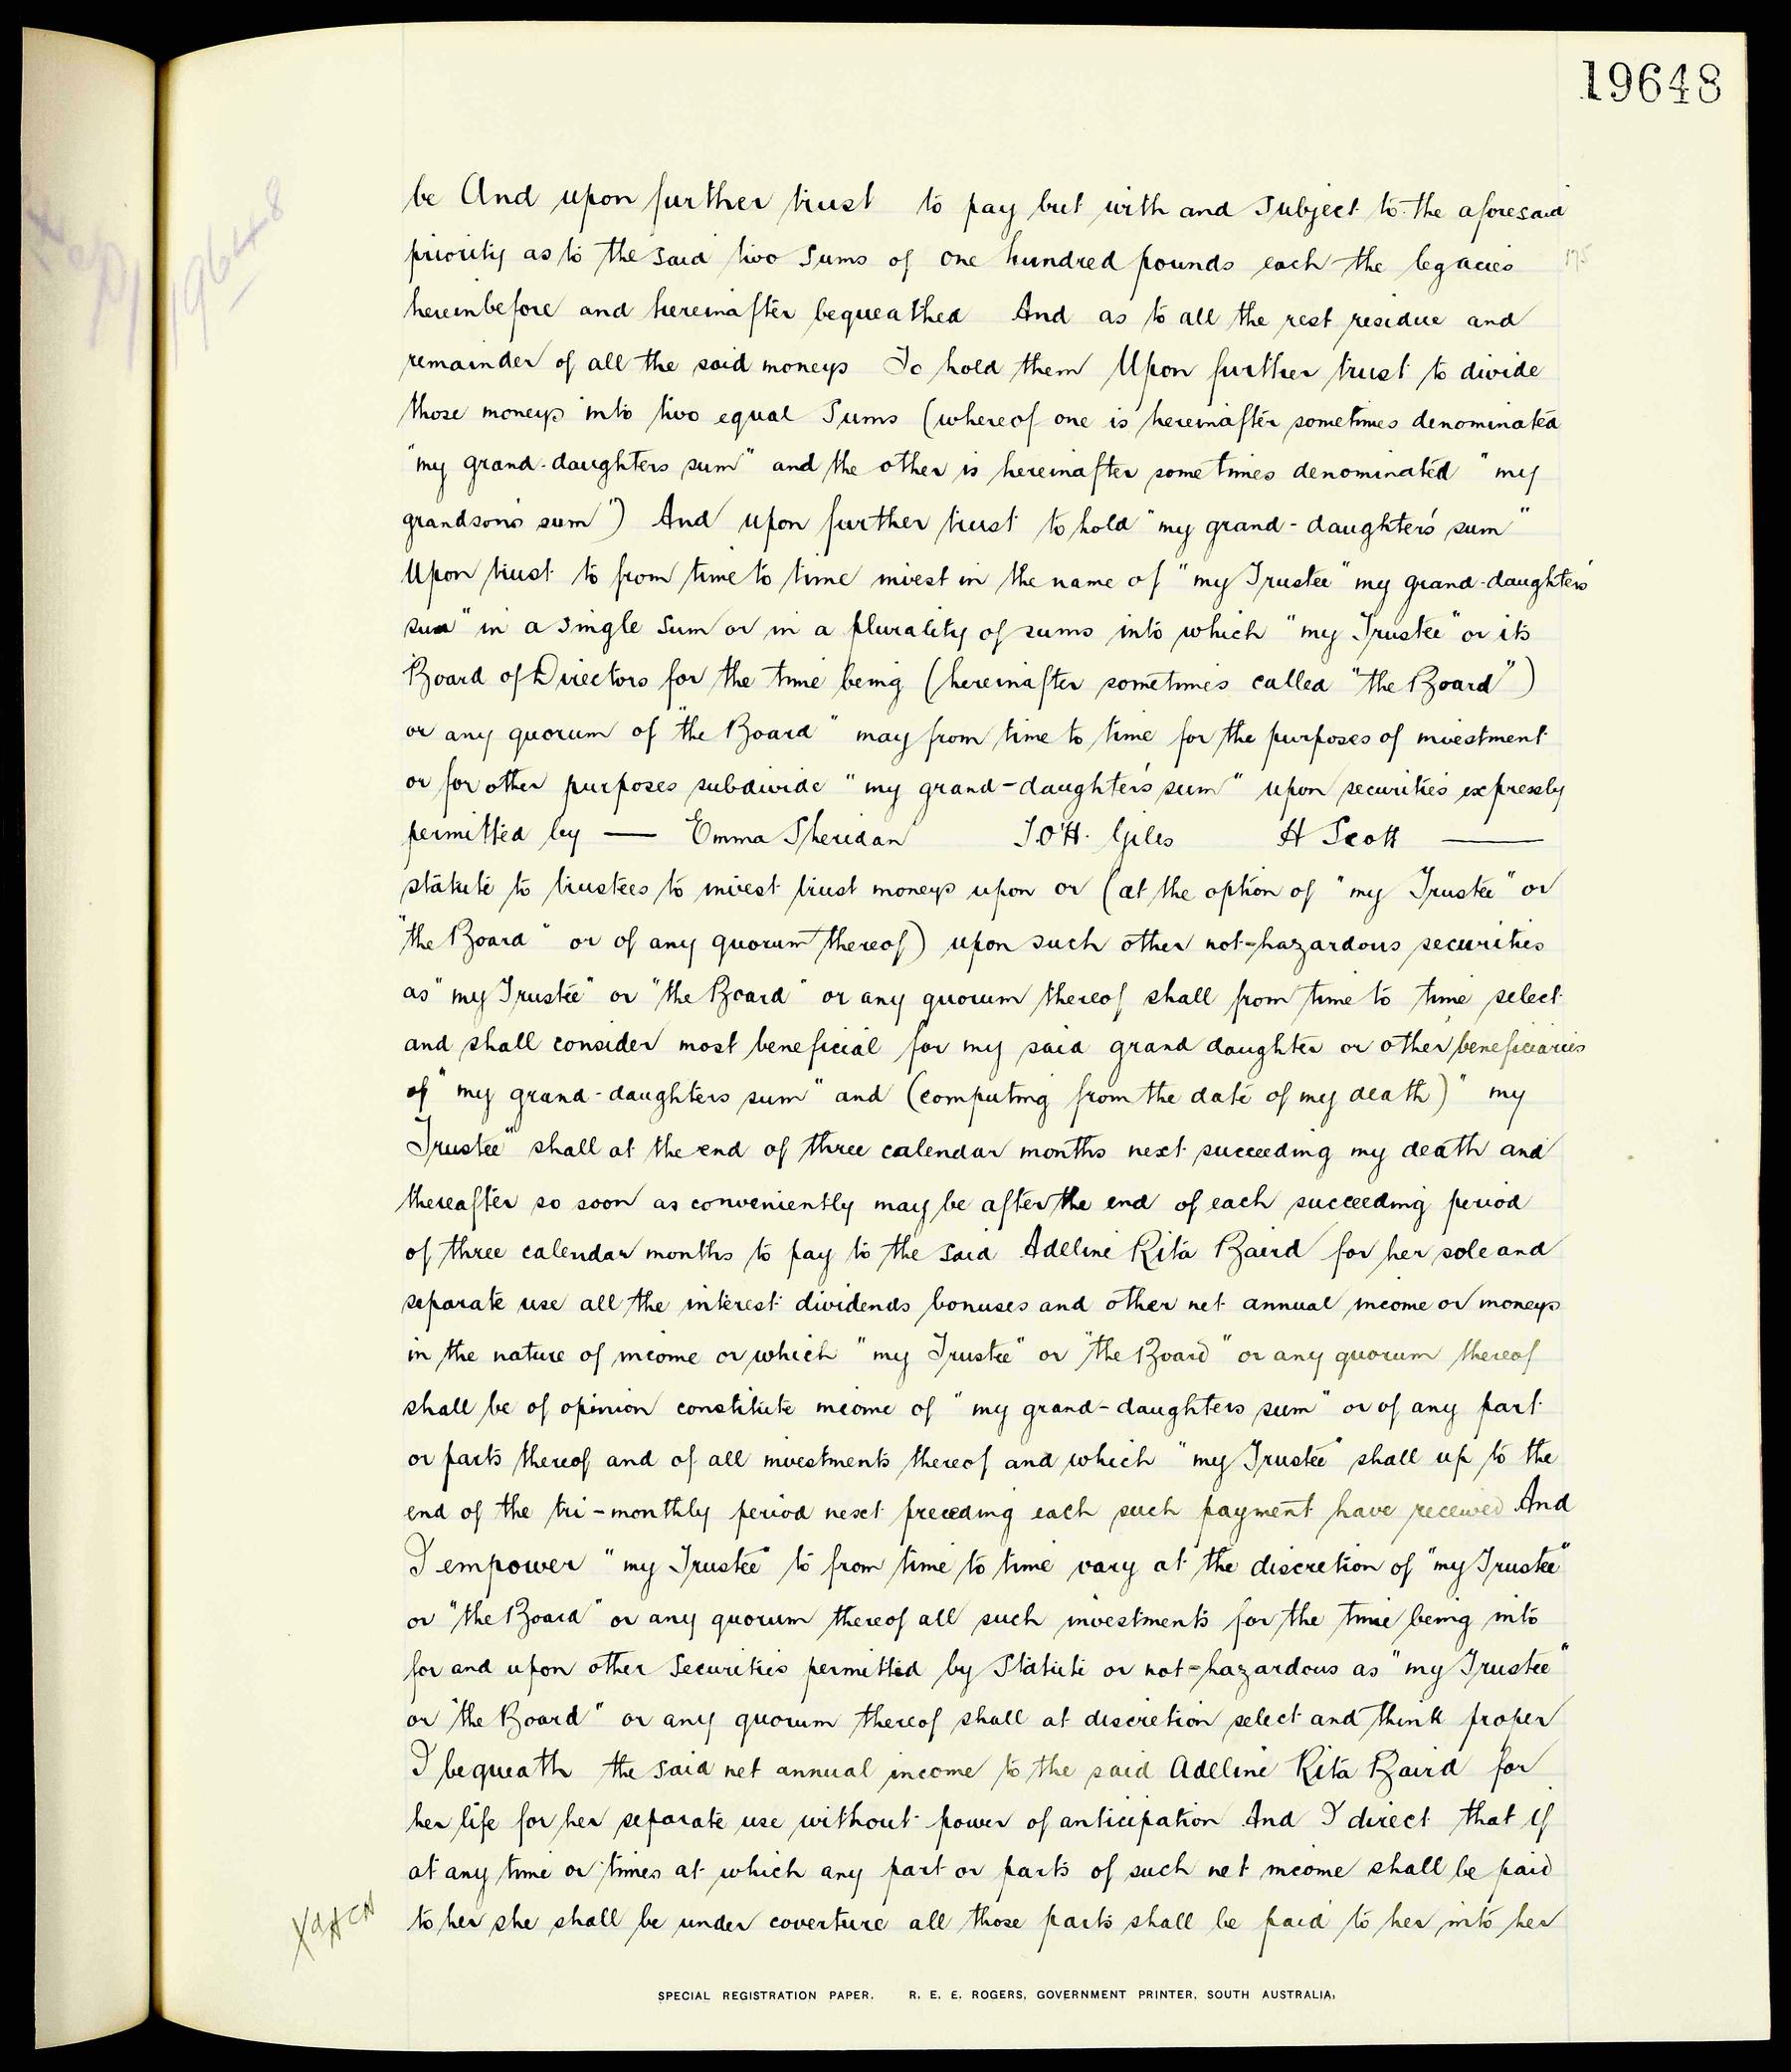 19648
19648
be And upon further trust to pay but with and Subject to the aforesaid
priority as to the said two Sums of one hundred pounds each the legacies
175
hereinbefore and hereinafter bequeathed And as to all the rest residue and
remainder of all the said moneys To hold them Upon further trust to divide
those moneys into two equal Sums (whereof one is hereinafter sometimes denominated
"my grand-daughters sum" and the other is hereinafter sometimes denominated "my
grandson's sum") And upon further trust to hold "my grand-daughter's sum"
Upon trust to from time to time invest in the name of "my Trustee" my grand-daughters'
sum" in a single sum or in a plurality of sums into which "my Trustee" or its
Board of Directors for the time being (hereinafter sometimes called "the Board")
or any quorum of "the Board" may from time to time for the purposes of investment
or for other purposes subdivide "my grand-daughter's sum" upon securities expressly
permitted by — Emma Sheridan T.O'H. Giles H Scott —
statute to trustees to invest trust moneys upon or (at the option of "my Trustee" or
"the Board" or of any quorum thereof) upon such other not-hazardous securities
as "my Trustee" or "the Board" or any quorum thereof shall from time to time select
and shall consider most beneficial for my said grand daughter or other beneficiaries
of "my grand-daughters sum" and (computing from the date of my death) "my
Trustee" shall at the end of three calendar months next succeeding my death and
thereafter so soon as conveniently may be after the end of each succeeding period
of three calendar months to pay to the said Adeline Rita Baird for her sole and
separate use all the interest dividends bonuses and other net annual income or moneys
in the nature of income or which "my Trustee" or "the Board" or any quorum thereof
shall be of opinion constitute income of "my grand-daughters sum" or of any part
or parts thereof and of all investments thereof and which "my Trustee" shall up to the
end of the tri-monthly period next preceding each such payment have received And
I empower "my Trustee" to from time to time vary at the discretion of "my Trustee"
or "the Board" or any quorum thereof all such investments for the time being into
for and upon other Securities permitted by Statute or not-hazardous as "my Trustee"
or "the Board" or any quorum thereof shall at discretion select and think proper
I bequeath the said net annual income to the said Adeline Rita Baird for
her life for her separate use without power of anticipation And I direct that if
at any time or times at which any part or parts of such net income shall be paid
to her she shall be under coverture all those parts shall be paid to her into her
SPECIAL REGISTRATION PAPER. R. E. E. ROGERS, GOVERNMENT PRINTER, SOUTH AUSTRALIA.